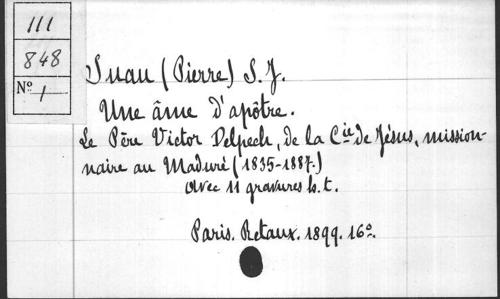 111
848
Nº 1
Suau (Pierre) S. J.
Une âme d'apôtre.
Le Père Victor Delpech, de la Cie de Jésus, mission-
naire au Maduré (1835-1887.)
avec 11 gravures h. t.
Paris. Retaux. 1899. 16º.